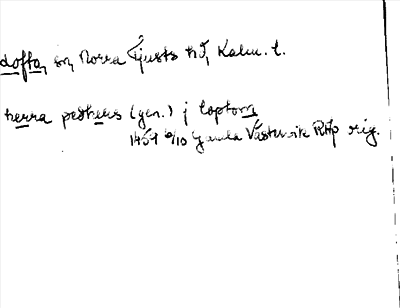 Lofta, sn, Norra Tjusts hd, Kalm. l.
herra pedhers (gen.) j loptom
1451 6/10 Gamla Västervik RAp orig.